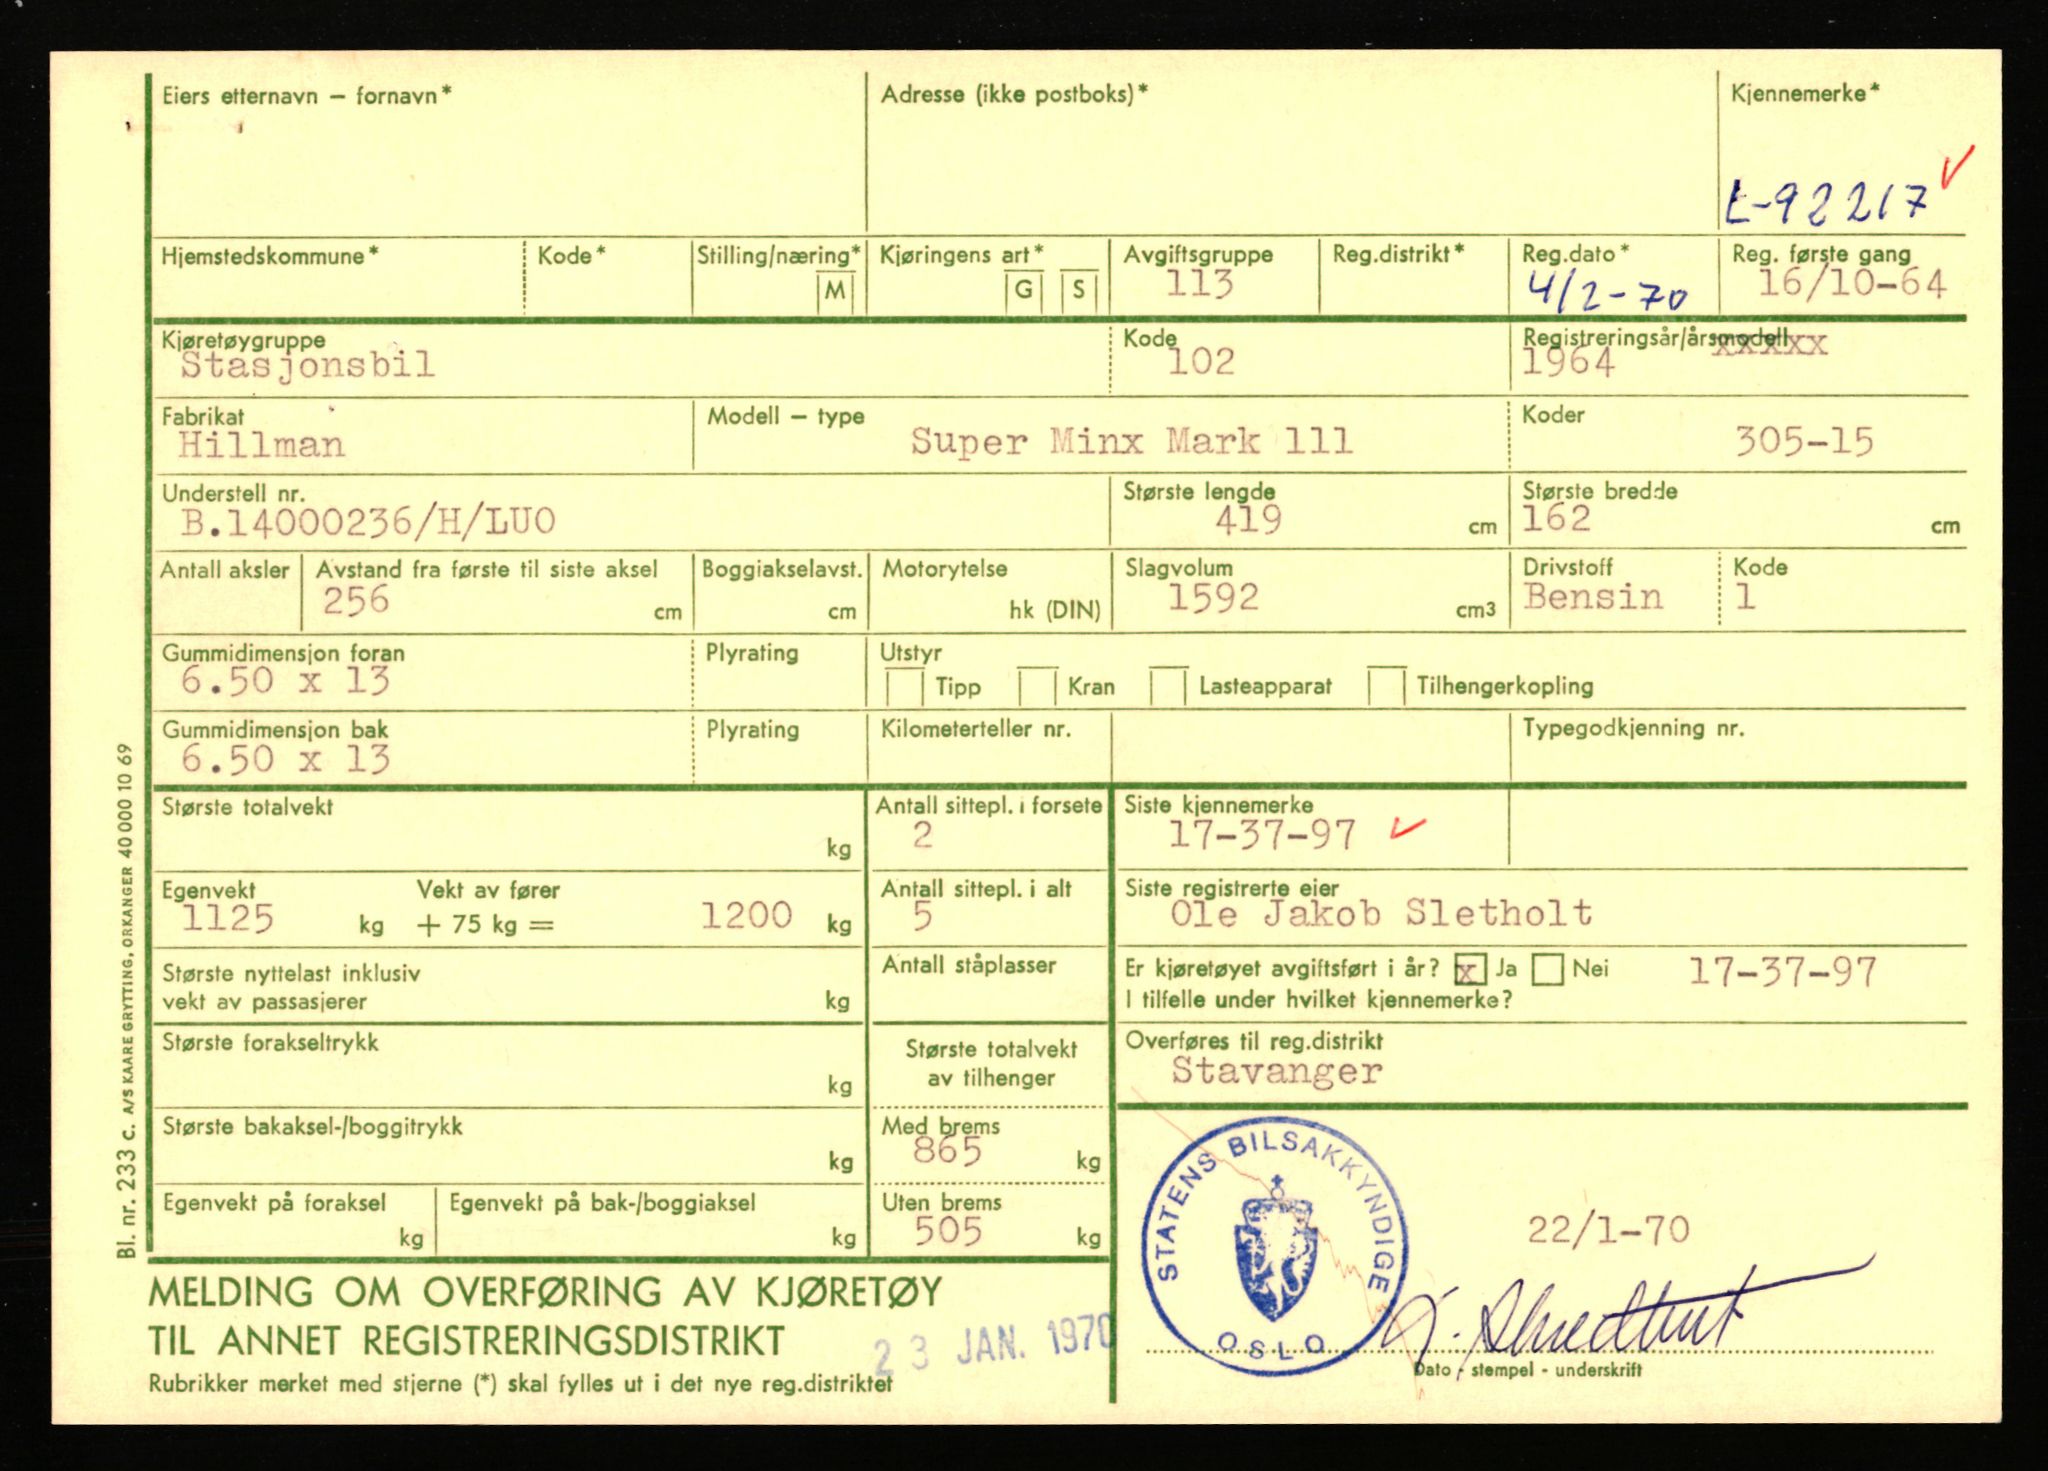 Eiers etternavn – fornavn*
Adresse (ikke postboks)*
Kjennemerke*
L-92217
Hjemstedskommune*
Kode*
Stilling/næring*
M
Kjøringens art*
G S
Avgiftsgruppe
113
Reg.distrikt*
Reg.dato*
4/2-70
Reg. første gang
16/10-64
Kjøretøygruppe
Stasjonsbil
Kode
102
Registreringsår/årsmodell
xxxxx
1964
Fabrikat
Hillman
Modell – type
Super Minx Mark 111
Koder
305-15
Understell nr.
B.14000236/H/LUO
Største lengde
419 cm
Største bredde
162 cm
Antall aksler
Avstand fra første til siste aksel
256 cm
Boggiakselavst.
cm
Motorytelse
hk (DIN)
Slagvolum
1592 cm3
Drivstoff
Bensin
Kode
1
Gummidimensjon foran
6.50 x 13
Plyrating
Utstyr
Tipp Kran Lasteapparat Tilhengerkopling
Gummidimensjon bak
6.50 x 13
Plyrating
Kilometerteller nr.
Typegodkjenning nr.
Største totalvekt
kg
Antall sittepl. i forsete
2
Siste kjennemerke
17-37-97
Egenvekt
1125 kg
Vekt av fører
+ 75 kg = 1200 kg
Antall sittepl. i alt
5
Siste registrerte eier
Ole Jakob Sletholt
Største nyttelast inklusiv
vekt av passasjerer kg
Antall ståplasser
Er kjøretøyet avgiftsført i år? x Ja Nei 17-37-97
I tilfelle under hvilket kjennemerke?
Største forakseltrykk
kg
Største totalvekt
av tilhenger
Overføres til reg.distrikt
Stavanger
Største bakaksel-/boggitrykk
kg
Med brems
865 kg
Egenvekt på foraksel
kg
Egenvekt på bak-/boggiaksel
kg
Uten brems
505 kg
STATENS BILSAKKYNDIGE
OSLO
22/1-70
Dato - stempel - underskrift
MELDING OM OVERFØRING AV KJØRETØY
TIL ANNET REGISTRERINGSDISTRIKT
23 JAN. 1970
Rubrikker merket med stjerne (*) skal fylles ut i det nye reg.distriktet
Bl. nr. 233 C. A/S KAARE GRYTTING, ORKANGER 40 000 10 69